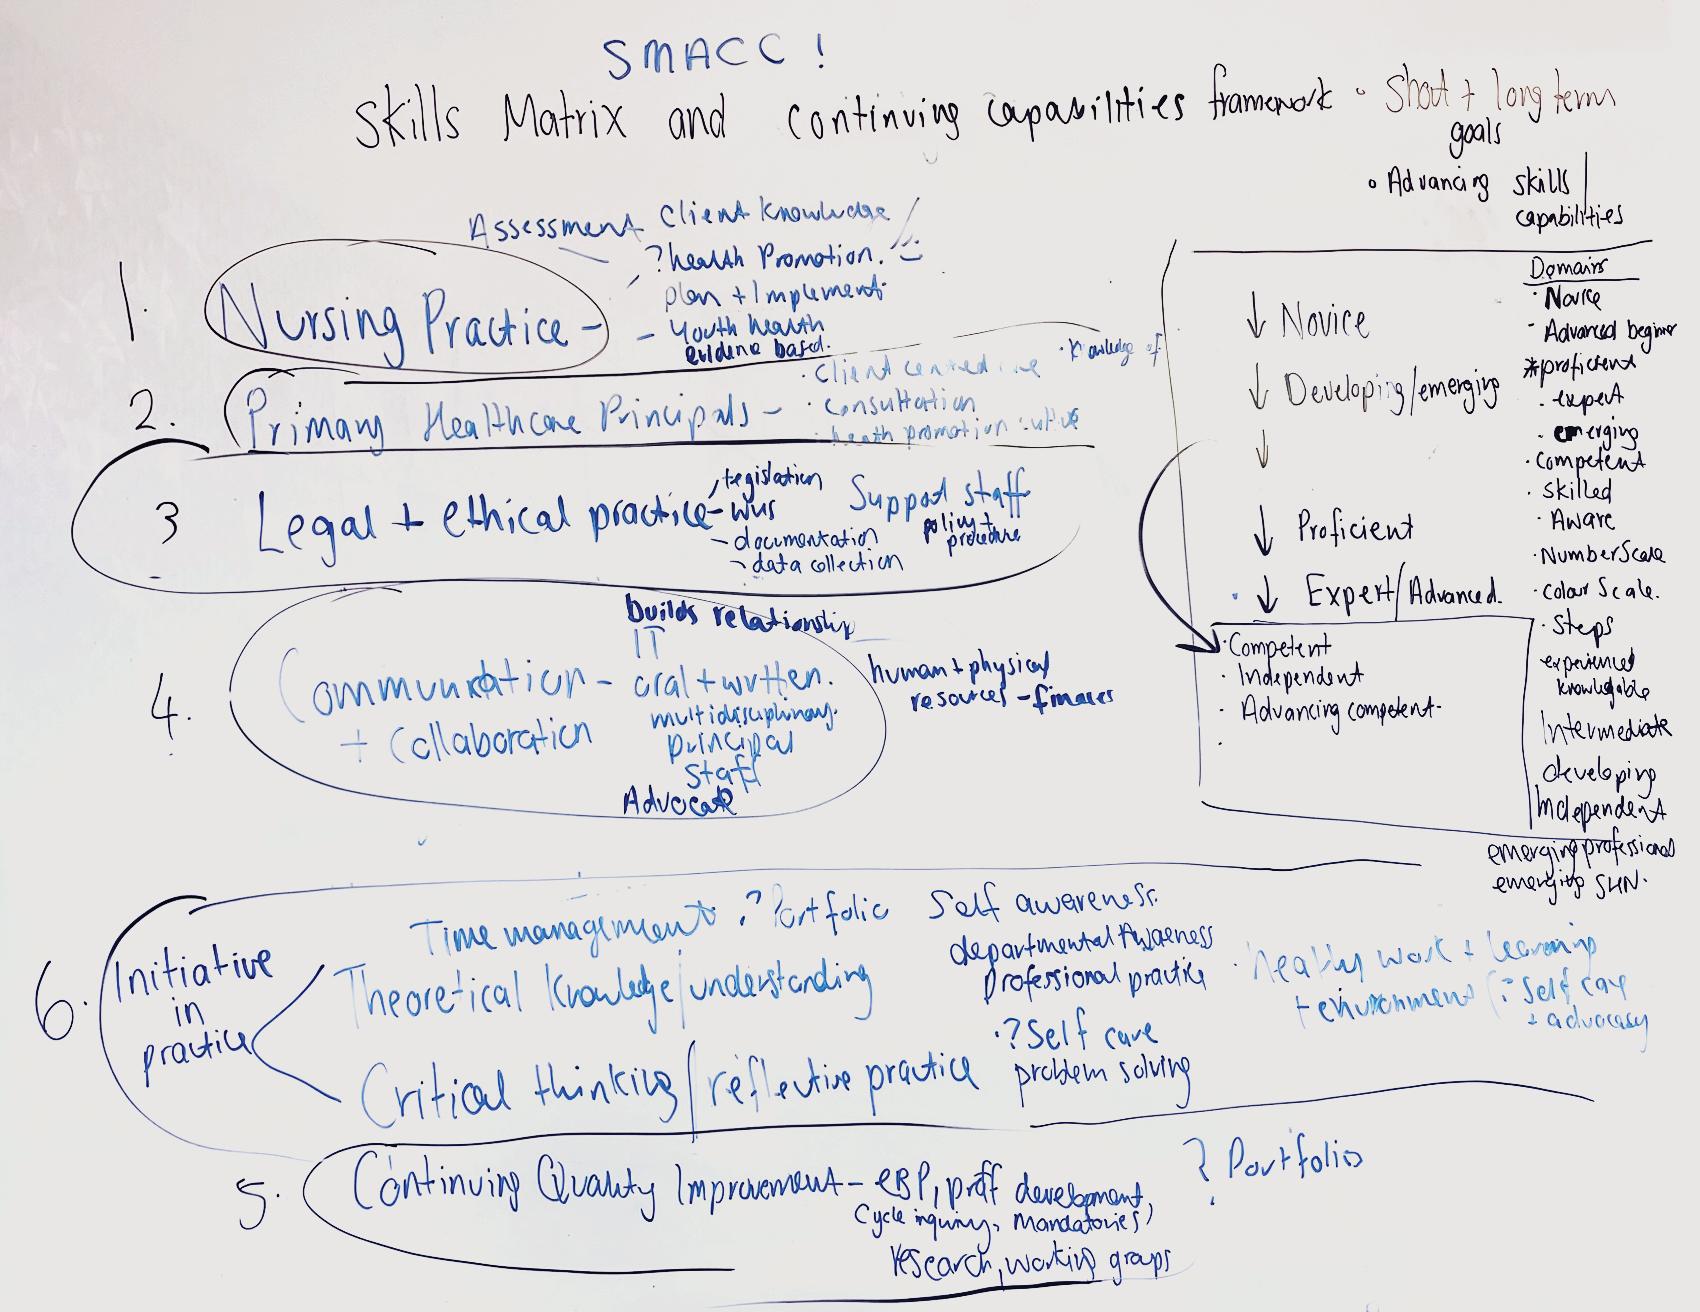 SMACC!
Skills Matrix and continuing capabilities framework
• Short + long term
goals
• Advancing skills/
capabilities
Assessment Client Knowledge
? health Promotion.
plan + Implement
1. Nursing Practice - - Youth health
evidence based.
2. Primary Healthcare Principals - • Client centred • Knowledge of
• Consultation
• health promotion culture
3 Legal + ethical practice - legislation
- WHS
- documentation
- data collection
Support staff
policy +
procedure
builds relationship
IT
4. Communication - oral + written.
+ Collaboration
multidisciplinary.
principal
staff
Advocate
human + physical
resources - finances
↓ Novice
↓ Developing/emerging
↓
↓ Proficient
↓ Expert/Advanced.
• Competent
• Independent
• Advancing competent.
Domains
• Novice
- Advanced beginner
* proficient
• expert
• emerging
• Competent
• Skilled
• Aware
• Number Scale
• Colour Scale.
• Steps
experienced
knowledgable
Intermediate
developing
Independent
emerging professional
emerging SHN.
6. Initiative
in
practice
Time management ? Portfolio Self awareness.
Theoretical Knowledge/understanding
departmental Awareness
professional practice
• healthy work + learning
+ environment (? Self care
+ advocacy
• ? Self care
Critical thinking/reflective practice problem solving
5. Continuing Quality Improvement - EBP, proff development,
(cycle inquiry, mandatories)
research, working groups
? Portfolio